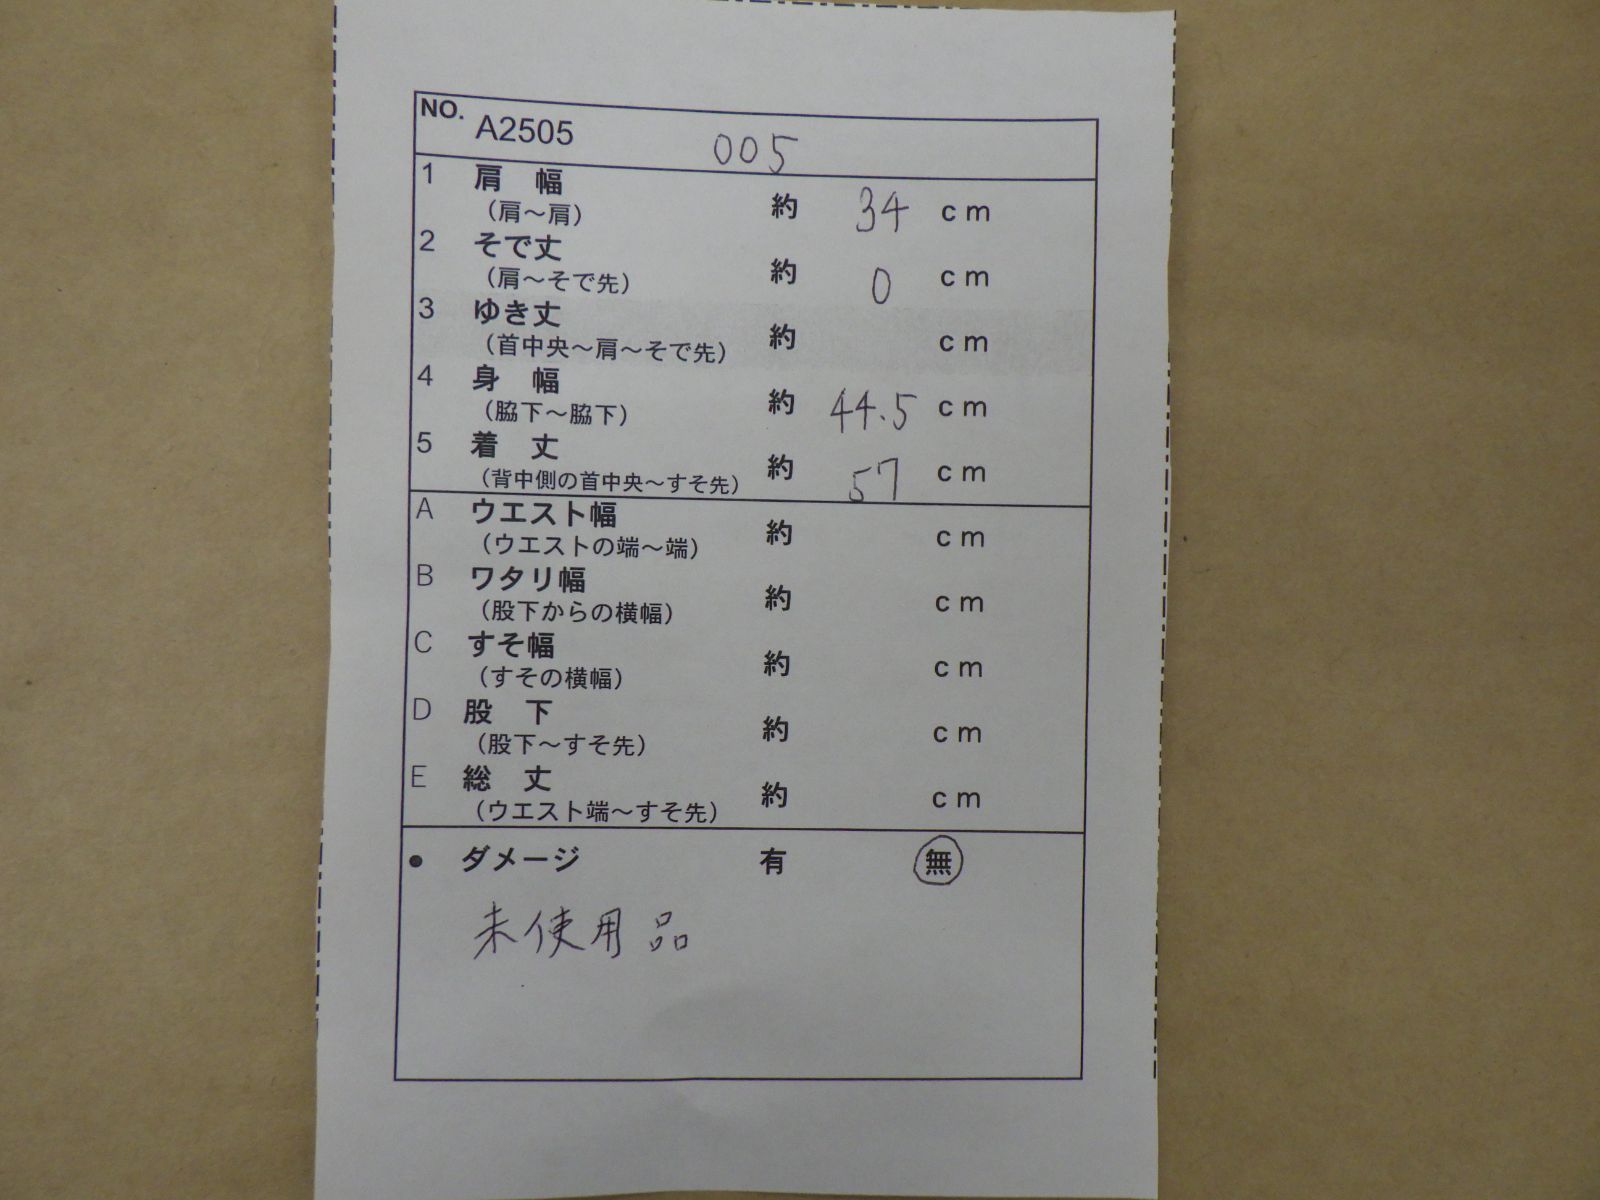 NO. A2505 005
1 肩 幅 約 34 cm
（肩～肩）
2 そで丈 約 0 cm
（肩～そで先）
3 ゆき丈 約 cm
（首中央～肩～そで先）
4 身 幅 約 44.5 cm
（脇下～脇下）
5 着 丈 約 57 cm
（背中側の首中央～すそ先）
A ウエスト幅 約 cm
（ウエストの端～端）
B ワタリ幅 約 cm
（股下からの横幅）
C すそ幅 約 cm
（すその横幅）
D 股 下 約 cm
（股下～すそ先）
E 総 丈 約 cm
（ウエスト端～すそ先）
● ダメージ 有 無
未使用品